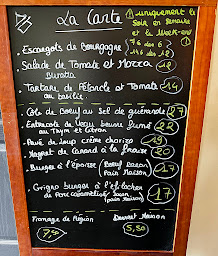 La Carte
① uniquement le
Soir en Semaine
et le Week-end
①
- Escargots de Bourgogne
7€ les 6
14€ les 12
- Salade de Tomate et Mozza 18
Buratta
- Tartare de Pétoncle et Tomate 14
au basilic
- Côte de Boeuf au Sel de guérande 27
- Entrecôte de Vessy beurre fumé 22
au Thym et Citron
- Pavé de loup crème chorizo 19
- Magret de Canard à la fraise 20
- Burger à l'époisse Boeuf
pain Maison 17
- Grigno burger à l'effiloché
de Porc caramélisé 17
(pain Maison)
Fromage de Région
Dessert Maison
5,50